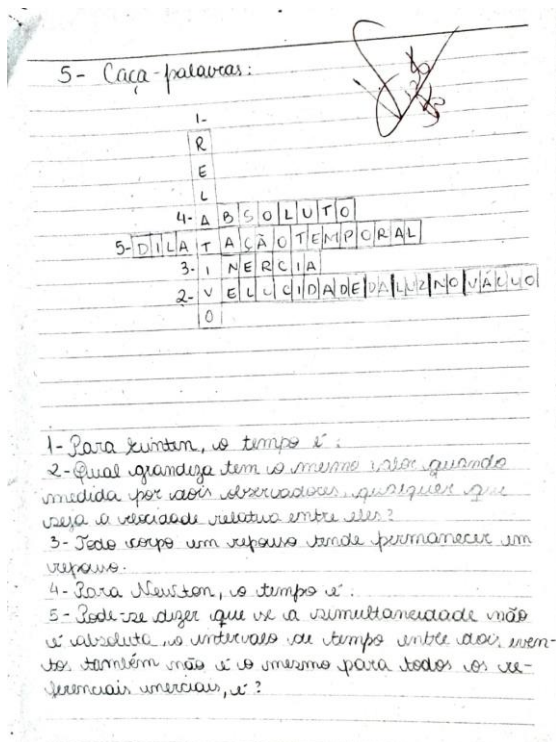 5- Caça-palavras:
1-
R
E
L
4- A B S O L U T O
5- D I L A T A Ç Ã O T E M P O R A L
3- I N E R C I A
2- V E L O C I D A D E D A L U Z N O V Á C U O
O
1- Para , o tempo é:
2- Qual grandeza tem o mesmo valor quando
medida por dois observadores, qualquer que
seja a velocidade relativa entre eles?
3- Todo corpo em repouso tende permanecer em
repouso.
4- Para Newton, o tempo é:
5- Pode-se dizer que se a simultaneidade não
é absoluta, o intervalo de tempo entre dois even-
tos também não é o mesmo para todos os re-
ferenciais inerciais, é?